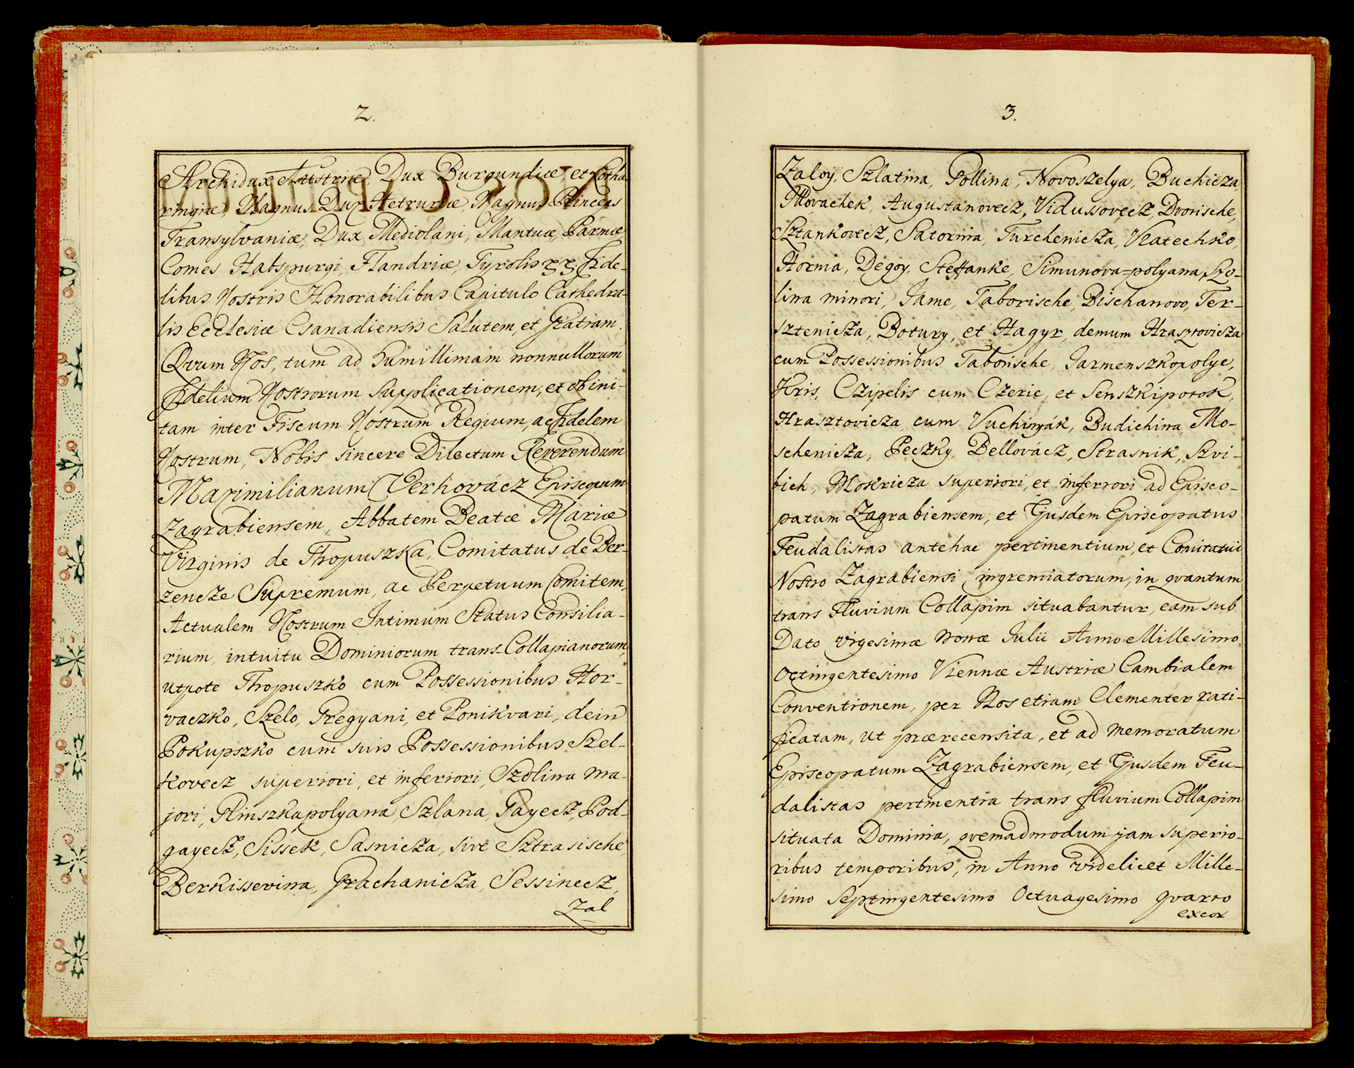 2.
Archidux Austriæ Dux Burgundiæ, et Lotha
ringiæ, Magnus Dux Hetruriæ, Magnus Princeps
Transylvaniæ, Dux Mediolani, Mantuæ, Parmæ
Comes Habspurgi, Flandriæ, Tyrolis Fide-
libus Nostris Honorabilibus Capitulo Cathedra-
lis Ecclesiæ Csanadiensis Salutem et Gratiam.
Qvum Nos, tum ad humillimam nonnullorum
Fidelium Nostrorum Supplicationem, et obini-
tam inter Fiscum Nostrum Regium, ac Fidelem
Nostrum, Nobis sincere Dilectum Reverendum
Maximilianum Verhovacz Episcopum
Zagrabiensem, Abbatem Beatæ Mariæ
Virginis de Thopuszka, Comitatus de Ber-
zencze Supremum, ac Perpetuum Comitem,
Actualem Nostrum Intimum Status Consilia-
rium, intuitu Dominiorum trans-Collapianorum
utpote Thopuszko cum Possessionibus Hor-
vaczko, Szelo, Gregyani, et Ponikvari, dein
Pokupszko cum suis Possessionibus Szel-
kovecz superiori, et inferiori, Szolina ma-
jori, Szlana, Gayecz, Pod-
gayecz, Sissek, Sasnicza, sive Sztrasische,
Berkissevina, Grachanicza, Sessinecz,
Zal
3.
Zaloy, Szlatina, Pollina, Novoszelya, Buchicza
Movachek, Augustanovecz, Vidussovecz, Dvorische,
Sztankovecz, Satornia, Turchenicza, Vratechko,
Hornia, Degoy, Steffanke, Simunova=polyana, Szo-
lina minori, Jame, Taborische, Bischanovo, Ter-
sztenicza, Botury, et Hagyr, demum Hrasztovicza
cum Possessionibus Taborische, Jarmenszkopolye,
Kris, Czipelis cum Czerie, et Senszkipotok,
Hrasztovicza cum Vuchinyák, Budichina, Mo-
schenicza, Peczky, Bellovácz, Strasnik, Szvi-
bich, Moskricza superiori, et inferiori ad Episco-
patum Zagrabiensem, et Ejusdem Episcopatus
Feudalistas antehac pertinentium, et Comitatui
Nostro Zagrabiensi, ingremiatorum, in qvantum
trans Fluvium Collapim situabantur, eam sub
Dato vigesimæ nonæ Julii Anno Millesimo
Octingentesimo Viennæ Austriæ Cambialem
Conventionem, per Nos etiam Clementer rati-
ficatam, ut prærecensita, et ad memoratum
Episcopatum Zagrabiensem, et Ejusdem Feu-
dalistas pertinentia trans fluvium Collapim
situata Dominia, qvemadmodum jam superio-
ribus temporibus, in Anno videlicet Mille-
simo Septingentesimo Octuagesimo qvarto
excor